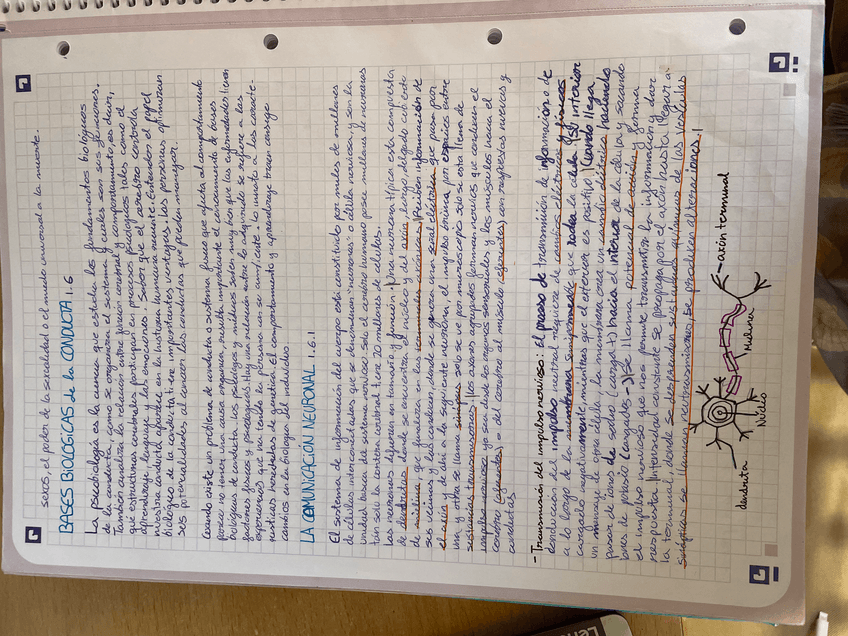 sexos, el poder de la sexualidad o el miedo universal a la muerte.
BASES BIOLOGICAS de la CONDUCTA 1.6
La psicobiología es la ciencia que estudia los fundamentos biológicos
de la conducta, como se organizan el sistema y cuales son sus funciones.
También analiza la relación entre función cerebral y comportamiento, es decir,
que estructuras cerebrales participan en procesos psicologicos tales como el
aprendizaje, lenguaje y las emociones. Saber que el cerebro controla
nuestra conducta aparece en la historia humana reciente. Entender el papel
biologico de la conducta tiene importantes ventajas. las personas optimizan
sus potencialidades al conocer las conductas que pueden manejar.
Cuando existe un problema de conducta o sistema fisico que afecta al comportamiento
pero no tiene una causa organica, resulta importante el conocimiento de bases
biologicas de conducta. Los psicologos y médicos saben muy bien que las enfermedades tienen
factores fisicos y psicologicos. Hay una relación entre lo adquirido se refiere a las
experiencias que ha tenido la persona con su amb/cto. - lo innato a las caracte-
risticas heredadas de genetica. El comportamiento y aprendizaje traen consigo
cambios en la biologia del individuo.
LA COMUNICACIÓN NEURONAL 1.6.1
El sistema de información del cuerpo está constituido por miles de millones
de células interconectadas que se denominan neuronas o célula nerviosa y son la
unidad basica del sistema nervioso. Solo el cerebro humano posee millones de neuronas
tan solo la corteza cerebral tiene 20 mil millones de células.
Las neuronas difieren en tamaño y función. Una neurona típica esta compuesta
de dendritas, donde se encuentra el núcleo y del axón, largo, delgado cubierto
de mielina que finaliza en los terminales axónicos. Reciben información de
sus vecinas y las conducen, donde se genera una señal eléctrica que pasa por
el axón y de ahí a la siguiente neurona, el impulso brinca por espacios entre
una y otra se llama sinapsis solo se ve por microscopio solo si esta lleno de
sustancias transmisoras. los axones agrupados forman nervios que conducen el
impulso nervioso ya sea desde los organos sensoriales y los músculos hacia el
cerebro (aferentes) o del cerebro al músculo (eferentes) con respuestas nuevas y
conductas
- Transmisión del impulso nervioso: El proceso de transmisión de información o de
conducción del impulso neutral requiere de cambios eléctricos y físicos
a lo largo de la membrana semipermeable que rodea la célula. (Su interior
cargado negativamente, mientras que el exterior es positivo). Cuando llega
un mensaje de otra célula, la membrana crea un cambio eléctrico haciendo
pasar de iones de sodio (carga+) hacia el interior de la célula y sacando
iones de potasio (carga+) -> Se llama potencial de acción y forma
el impulso nervioso que nos permite transmitir la información y dar
respuesta. Intensidad constante se propaga por el axón hasta llegar a
la terminal, donde se desprenden sustancias químicas de las vesículas
sinápticas se llaman neutrotransmisores. Se producen alteraciones!
dendrita
Núcleo
Mielina
axón terminal